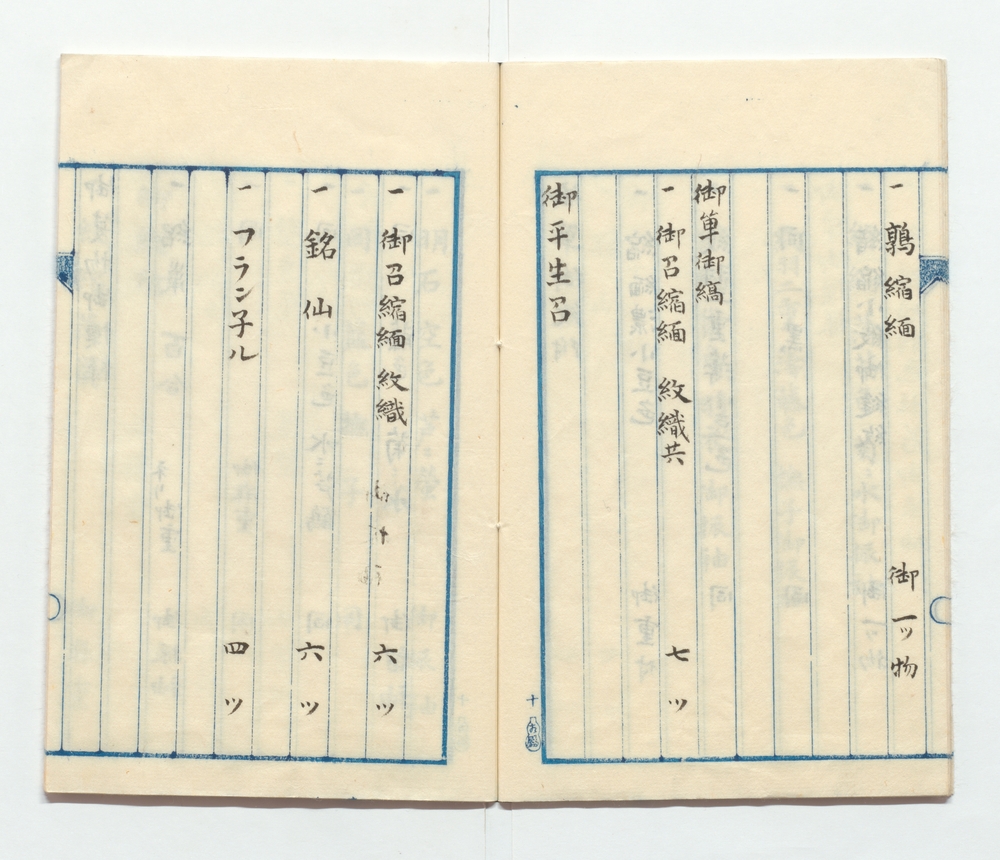 一 鶉縮緬 御一ッ物
御単御縞
一 御召縮緬 紋織共 七ツ
御平生召
十
一 御召縮緬紋織 六ツ
一 銘仙 六ツ
一 フランネル 四ツ